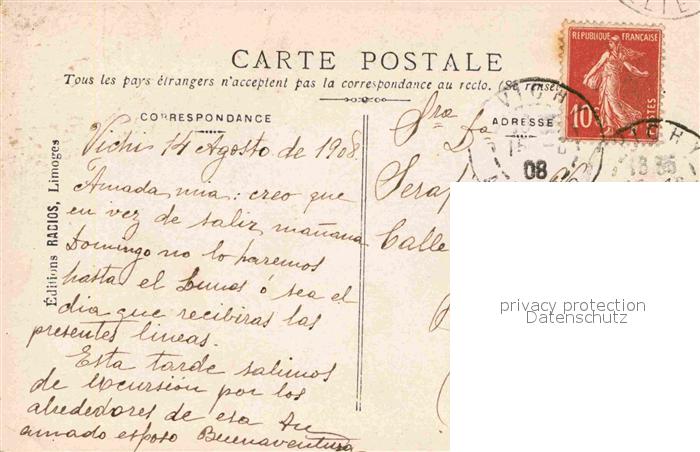 CARTE POSTALE
Tous les pays étrangers n'acceptent pas la correspondance au recto. (Se rensei
CORRESPONDANCE
ADRESSE
REPUBLIQUE FRANÇAISE
10
POSTES
VICHY
08
VICHY
Éditions RACIOS, Limoges
Vichi 14 Agosto de 1908
Amada mia: creo que
en vez de salir mañana
Domingo no lo haremos
hasta el Lunes ó sea el
dia que recibiras las
presentes lineas.
Esta tarde salimos
de excursión por los
alrededores de esa tu
amado esposo Buenaventura
Sra Da
Seraf
Calle
privacy protection
Datenschutz